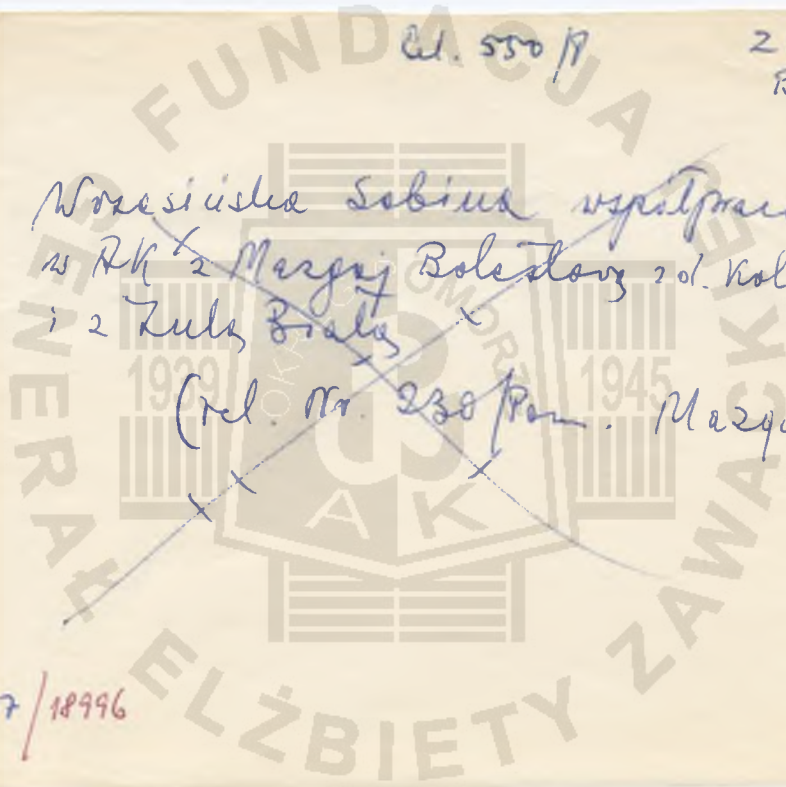 550/P 2
Wrzesińska Sabina współprac
w AK z Mazgaj Bolesławą z d. Kol
i z Zulą Białą
(rel. Nr. 230/Pom. Mazga
7/18996
FUNDACJA
GENERAŁ ELŻBIETY ZAWACKIEJ
1939 1945
AK